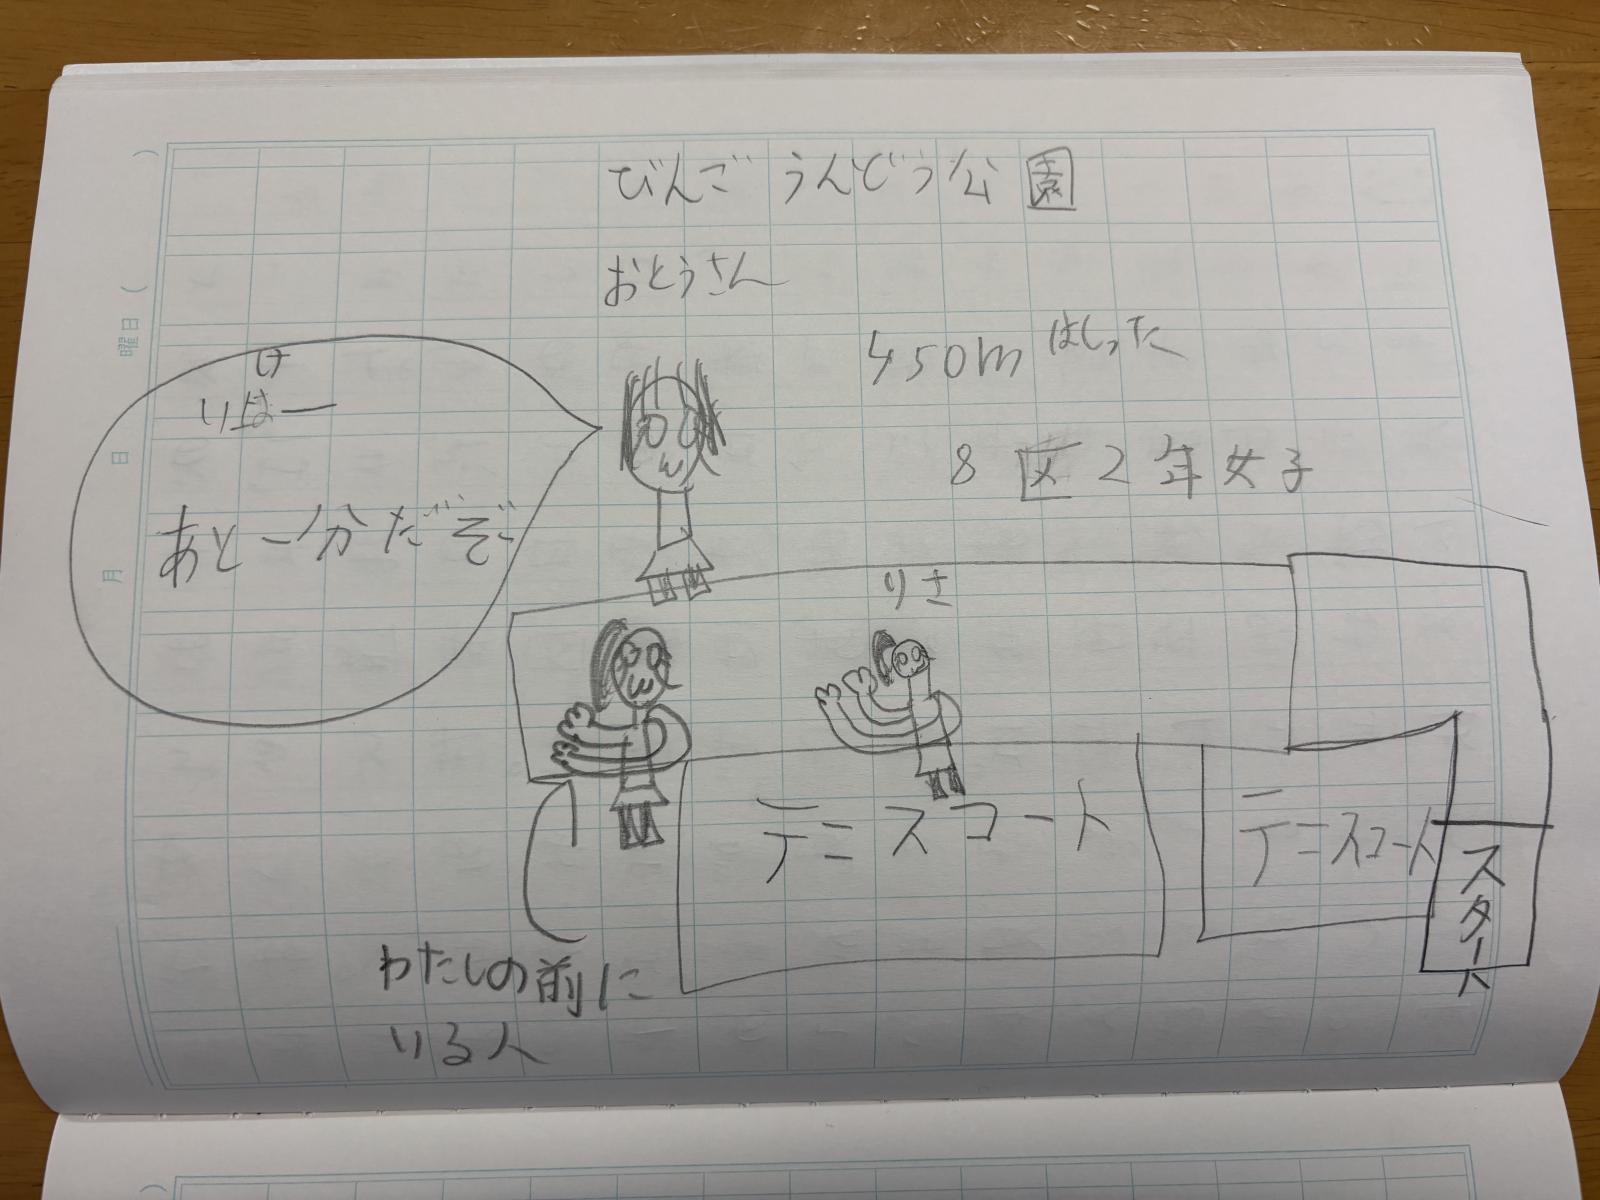 びんごうんどう公園
おとうさん
450mはしった
8区2年女子
あと一分だぞ
りさ
テニスコート
テニスコート
スタート
わたしの前に
いる人
曜日
日
月